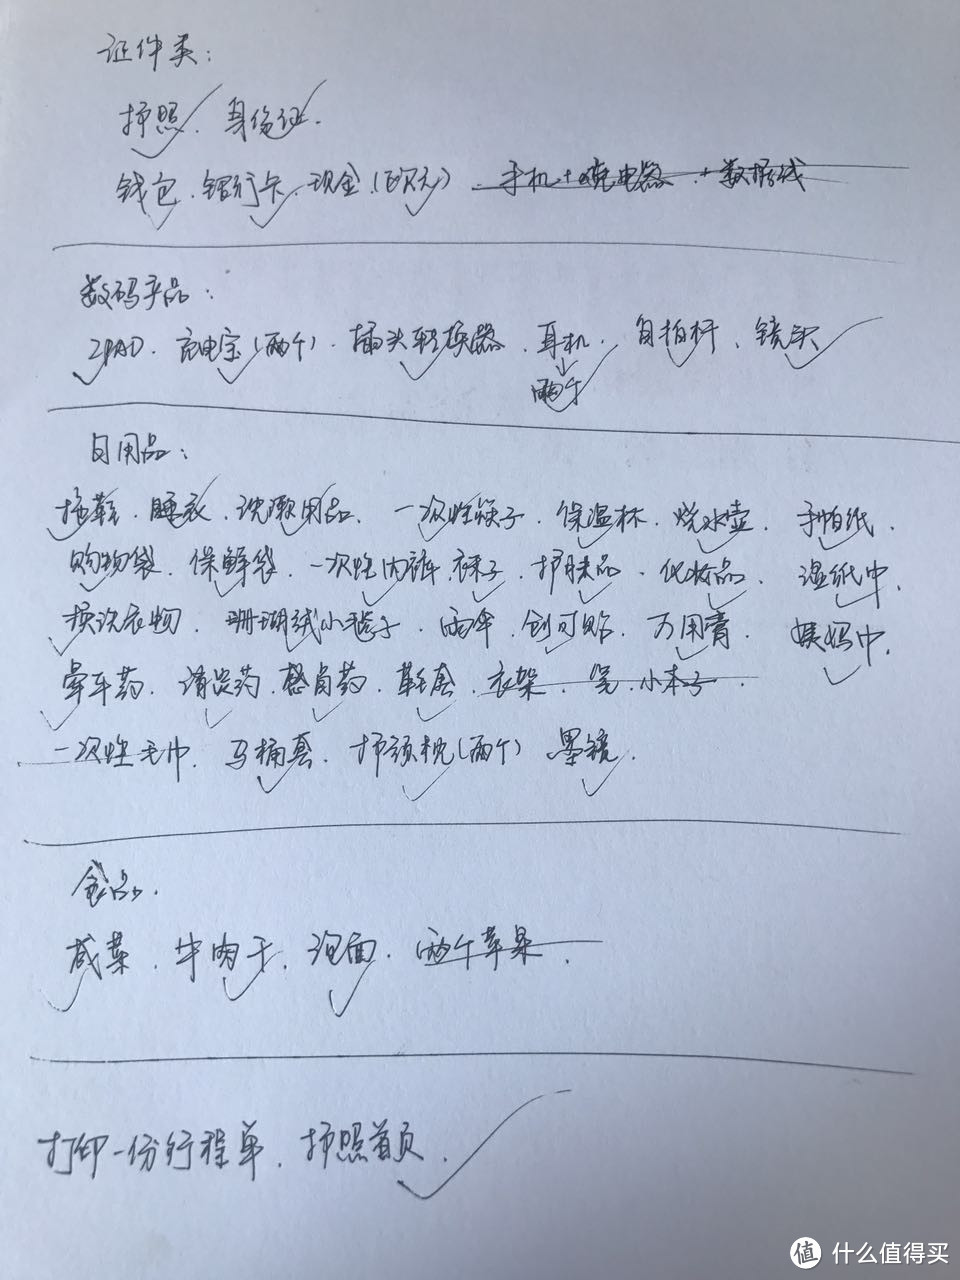 证件类：
护照、身份证.
钱包、银行卡、现金(欧元)、手机+充电器+数据线
数码产品：
IPAD、充电宝(两个)、插头转换器、耳机、自拍杆、镜头
两个
日用品：
拖鞋、睡衣、洗漱用品、一次性筷子、保温杯、烧水壶、手帕纸、
购物袋、保鲜袋、一次性内裤、袜子、护肤品、化妆品、湿纸巾、
换洗衣物、珊瑚绒小毯子、雨伞、创可贴、万用膏、姨妈巾、
晕车药、清炎药、感冒药、鞋套、衣架、笔、小本子.
一次性毛巾、马桶套、护颈枕(两个) 墨镜.
食品.
咸菜、牛肉干、泡面、两个苹果.
打印一份行程单、护照首页.
值 什么值得买